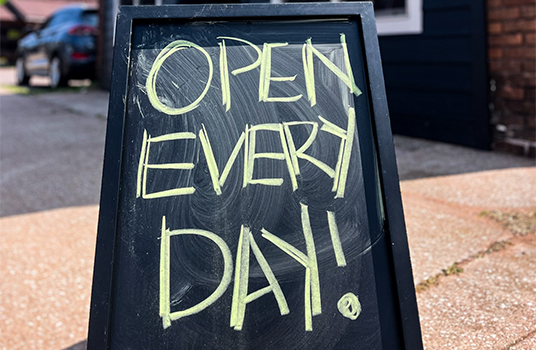 OPEN
EVERY
DAY!